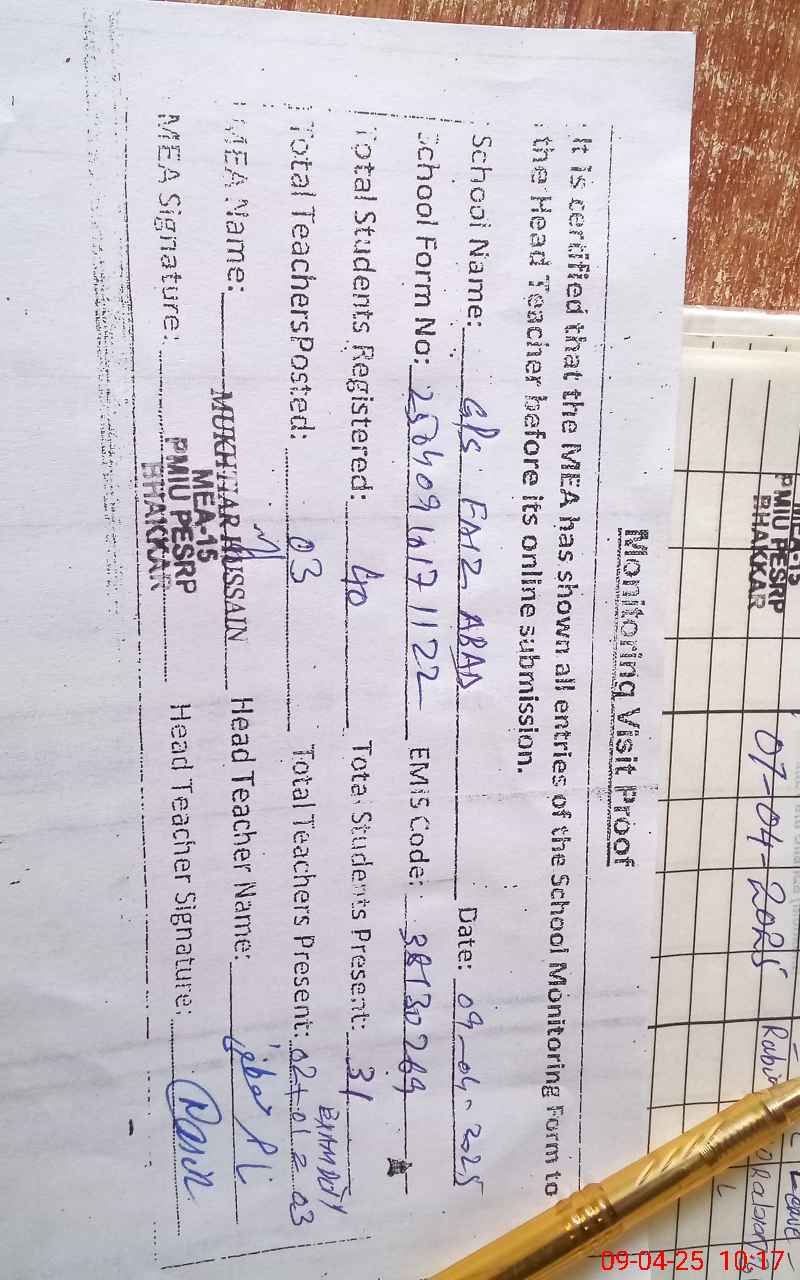 Monitoring Visit Proof
It is certified that the MEA has shown all entries of the School Monitoring Form to
the Head Teacher before its online submission.
School Name: GPS FAIZ ABAD Date: 09-04-2025
School Form No: EMIS Code: 38130269
Total Students Registered: 40 Total Students Present: 31
Total Teachers Posted: 03 Total Teachers Present: 02+01=03
MEA Name: MUKHTIAR HUSSAIN Head Teacher Name:
MEA-15
MEA Signature: PMIU PESRP Head Teacher Signature:
BHAKKAR
MEA-15
PMIU PESRP
BHAKKAR
07-04-2025
Leave
09-04-25 10:17